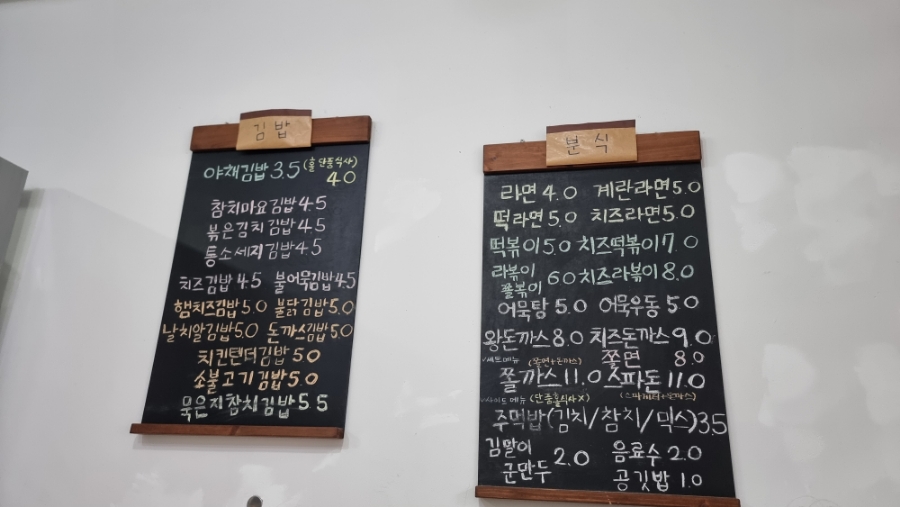 김밥
야채김밥 3.5 (홀 단품식사) 4.0
참치마요김밥 4.5
볶은김치김밥 4.5
통소세지김밥 4.5
치즈김밥 4.5 불어묵김밥 4.5
햄치즈김밥 5.0 불닭김밥 5.0
날치알김밥 5.0 돈까스김밥 5.0
치킨텐더김밥 5.0
소불고기김밥 5.0
묵은지참치김밥 5.5
분식
라면 4.0 계란라면 5.0
떡라면 5.0 치즈라면 5.0
떡볶이 5.0 치즈떡볶이 7.0
라볶이
쫄볶이 6.0 치즈라볶이 8.0
어묵탕 5.0 어묵우동 5.0
왕돈까스 8.0 치즈돈까스 9.0
쫄면 8.0
√세트메뉴 (쫄면+돈까스)
쫄까스 11.0 스파돈 11.0
(스파게티+돈까스)
√사이드메뉴 (단품홀식사X)
주먹밥(김치/참치/믹스) 3.5
김말이
군만두 2.0
음료수 2.0
공깃밥 1.0